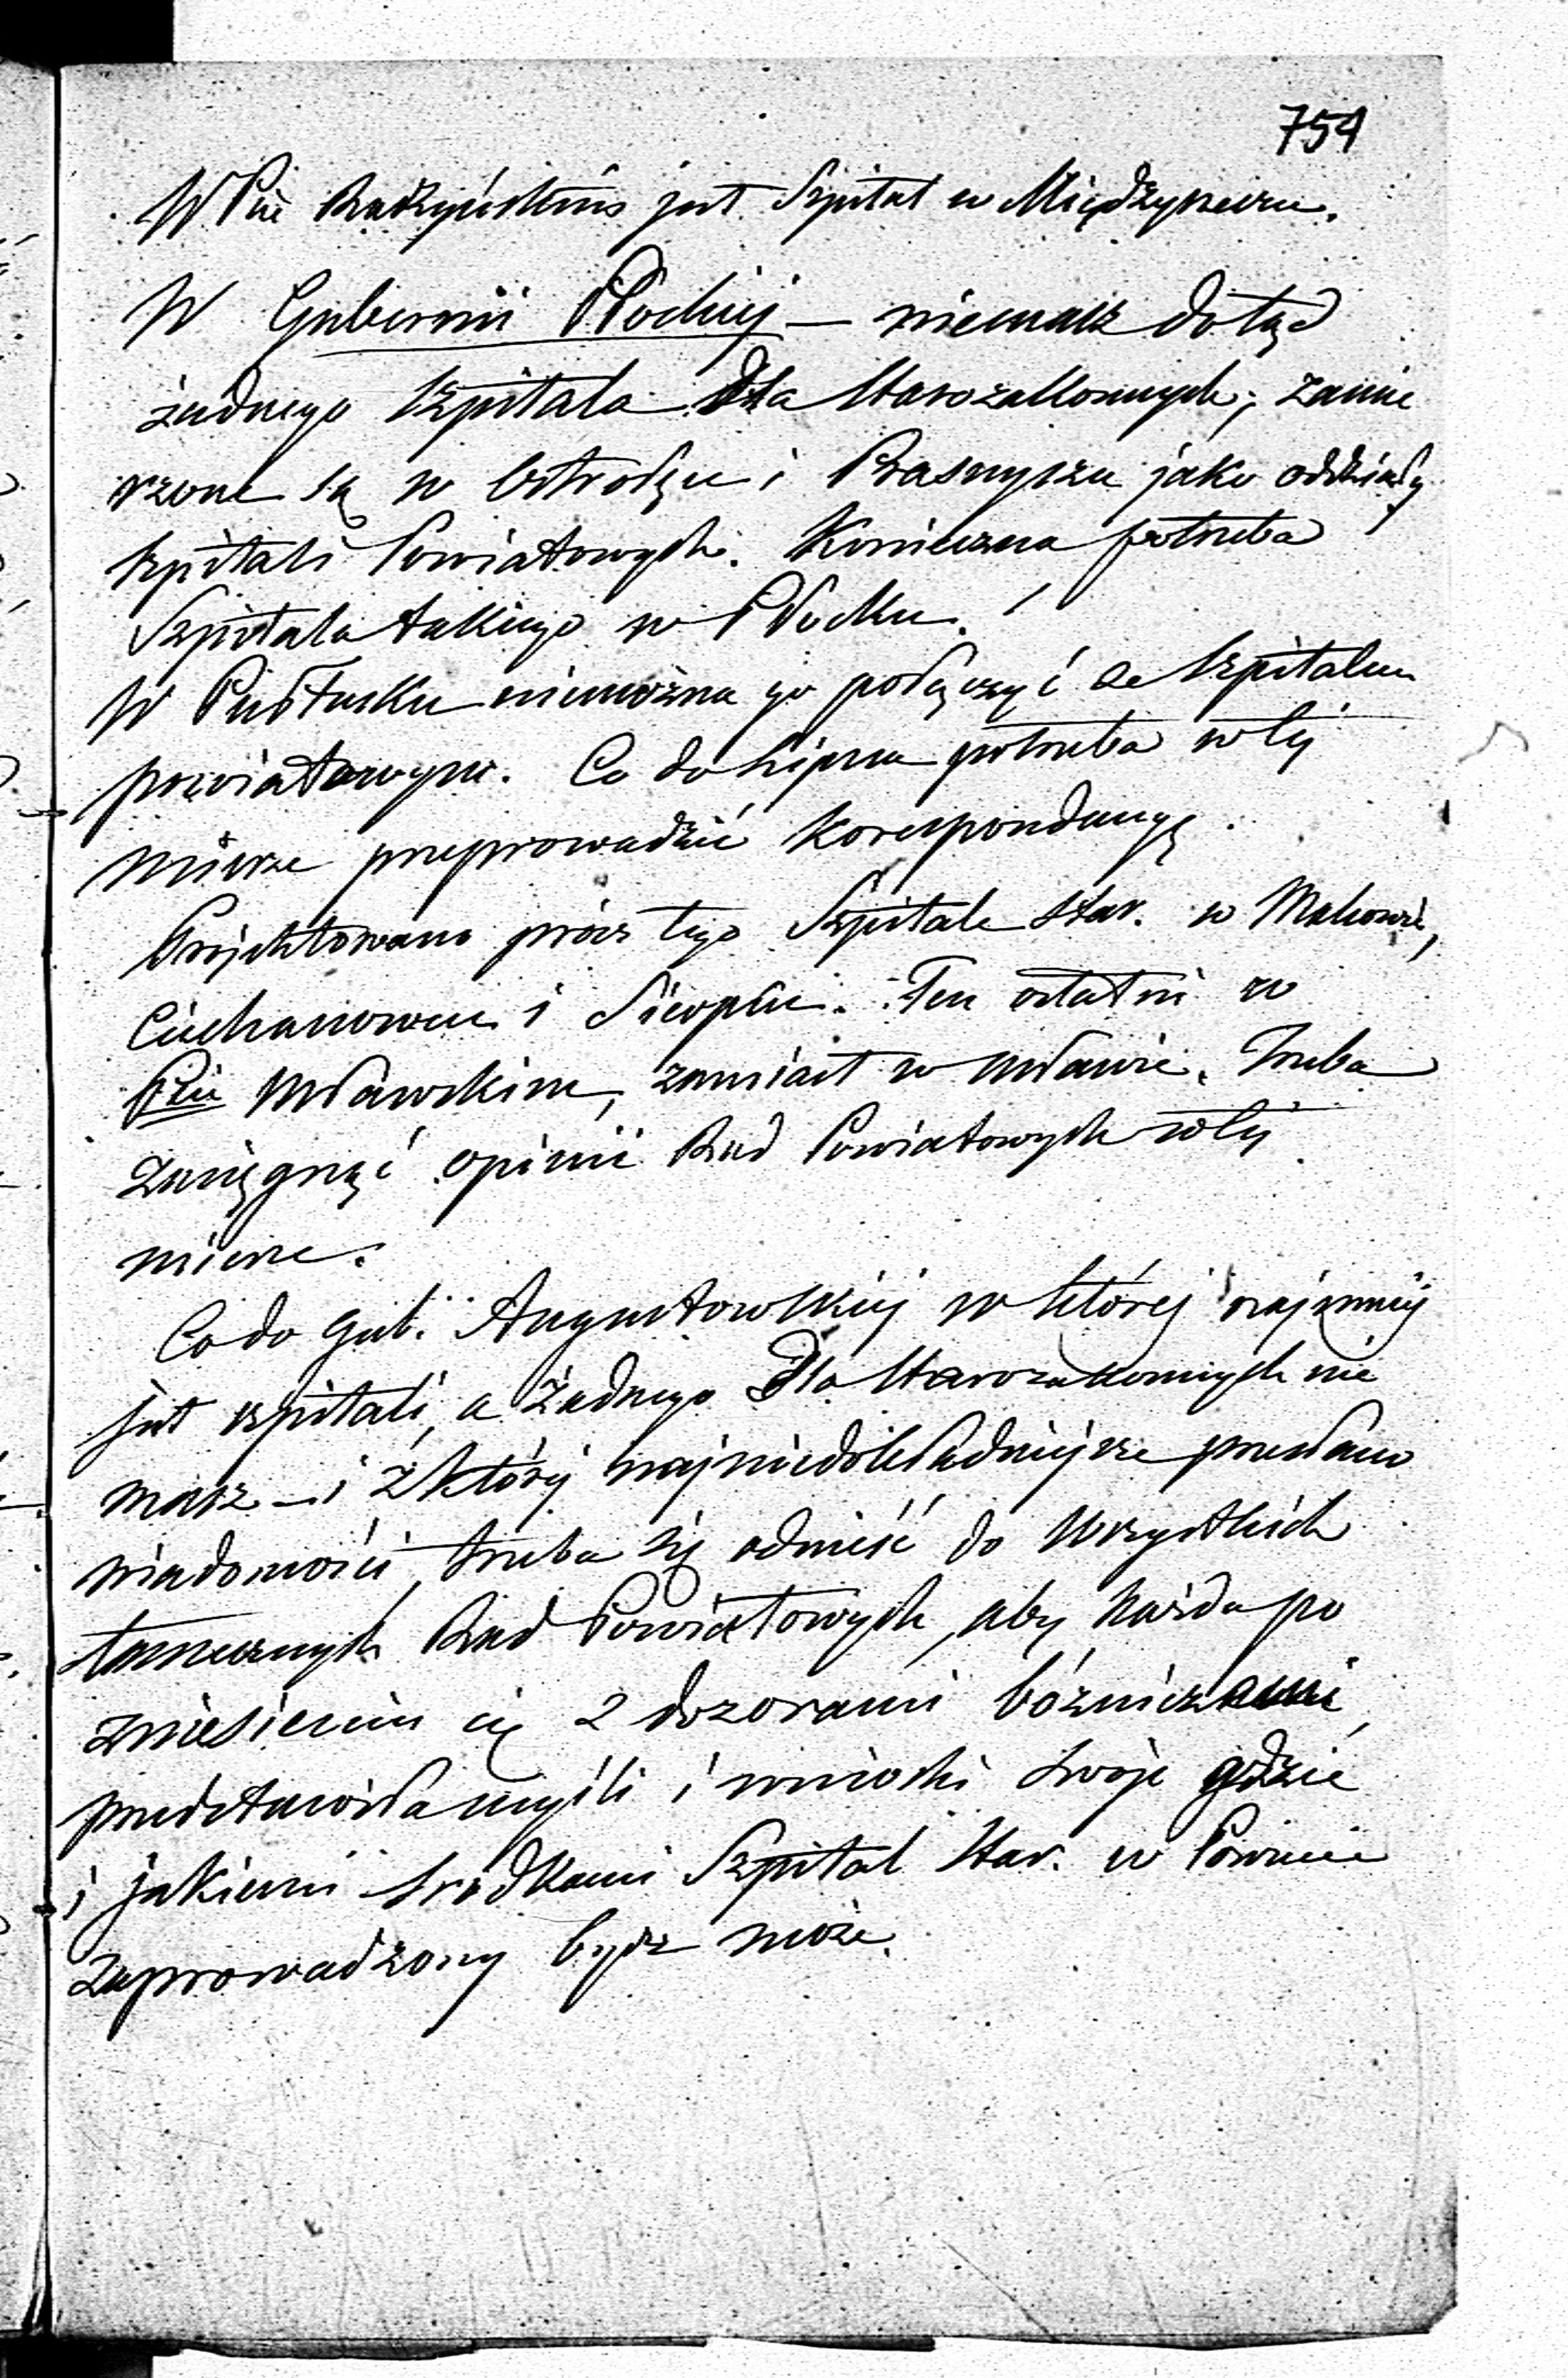 754
W Pcie Radzyńskim jest Szpital w Międzyrzecu.
W Gubernii Płockiej — niemasz dotąd
żadnego szpitala dla Starozakonnych; zamie
rzone są w Ostrołęce i Prasnyszu jako oddziały
szpitali Powiatowych. Konieczna potrzeba
Szpitala takiego w Płocku.
W Pułtusku niemożna go połączyć ze Szpitalem
powiatowym. Co do Lipna potrzeba w tej
mierze przeprowadzić korespondencyę
Projektowano prócz tego Szpitale star. w Makowie,
Ciechanowcu i Sierpcu. Ten ostatni w
Pcie Mławskim, zamiast w Mławie. Trzeba
zasięgnąć opinii Rad Powiatowych w tej
mierze.
Co do Gub. Augustowskiej w której najmniej
jest szpitali, a żadnego dla Starozakonnych nie
masz — i z której najniedokładniejsze przesłano
wiadomości, trzeba się odnieść do wszystkich
tamecznych Rad Powiatowych, aby każda po
zniesieniu się z dozorami bóżniczemi,
przedstawiła myśli i wnioski swoje gdzie
i jakiemi środkami Szpital Star. w Powiecie
zaprowadzony bydz może.